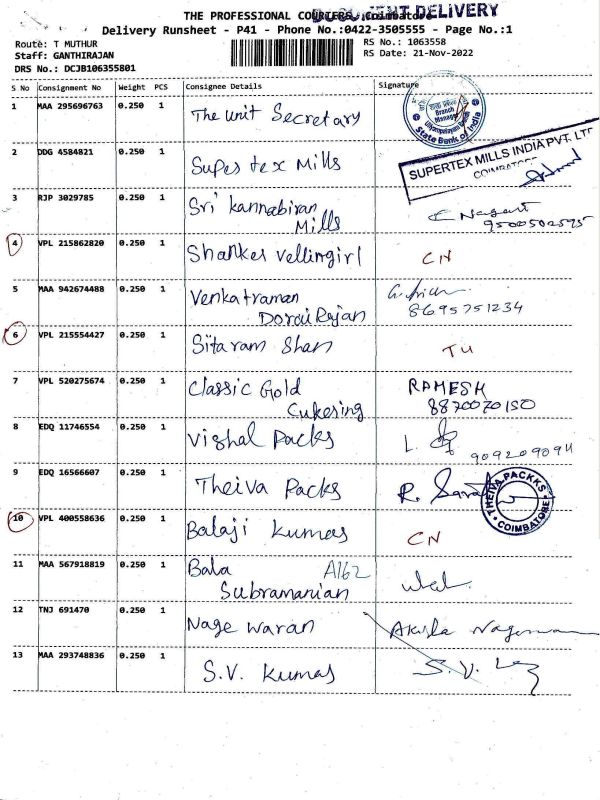 THE PROFESSIONAL COURIERS, Coimbatore
DOCUMENT DELIVERY
Delivery Runsheet - P41 - Phone No.:0422-3505555 - Page No.:1
Route: T MUTHUR
Staff: GANTHIRAJAN
DRS No.: DCJB106355801
RS No.: 1063558
RS Date: 21-Nov-2022
S No Consignment No Weight PCS Consignee Details Signature
1 MAA 295696763 0.250 1 The Unit Secretary
Branch Manager
State Bank of India
2 DDG 4584821 0.250 1 Supertex Mills
SUPERTEX MILLS INDIA PVT. LTD
COIMBATORE
3 RJP 3029785 0.250 1 Sri Kannabiran
Mills
9500502595
4 VPL 215862820 0.250 1 Shanker Vellingiri CN
5 MAA 942674488 0.250 1 Venkatraman
Dorai Rajan 8695751234
6 VPL 215554427 0.250 1 Sitaram Shan TU
7 VPL 520275674 0.250 1 Classic Gold RAMESH
8870070150
8 EDQ 11746554 0.250 1 Vishal Packs L.
9092090911
9 EDQ 16566607 0.250 1 Theiva Packs R.
THEIVA PACKKS
COIMBATORE
10 VPL 400558636 0.250 1 Balaji Kumar CN
11 MAA 567918819 0.250 1 Bala A162
Subramanian
12 TNJ 691470 0.250 1 Nage waran Akila
13 MAA 293748836 0.250 1 S.V. Kumar S.V.